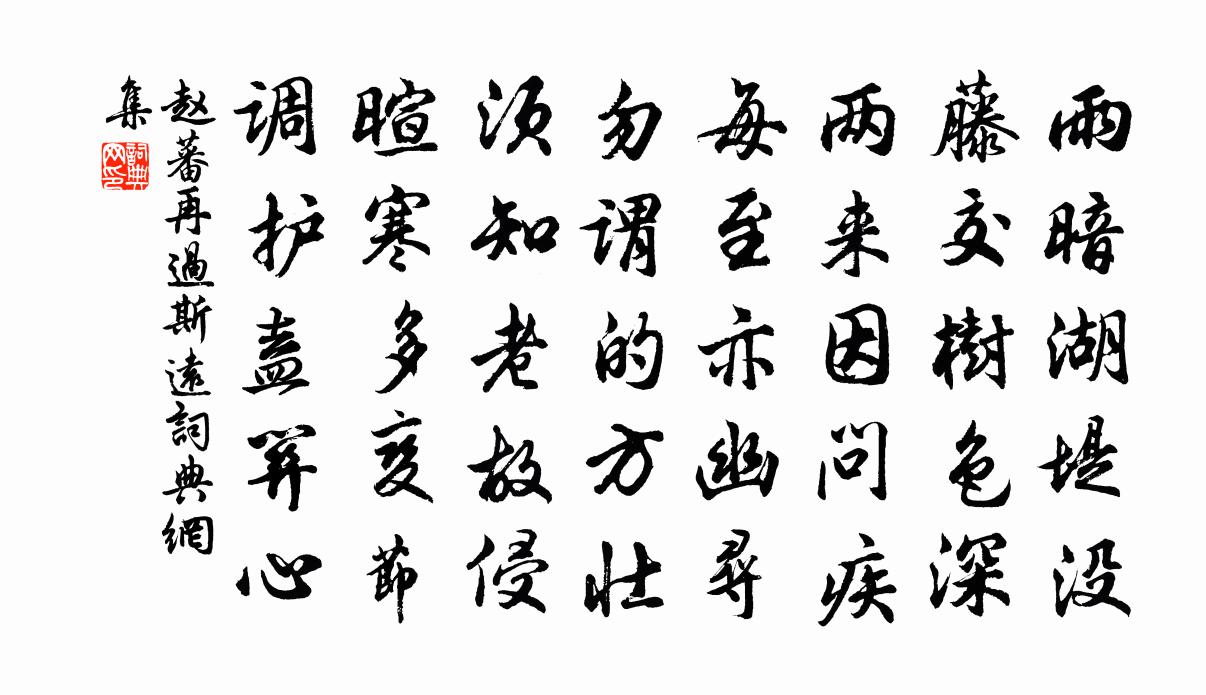 雨暗湖堤没
藤交樹色深
两来因问疾
每至亦幽尋
勿谓的方壮
须知老故侵
暄寒多变節
调护盍羿心
赵蕃再過斯遠詞典網
集
詞典
网印